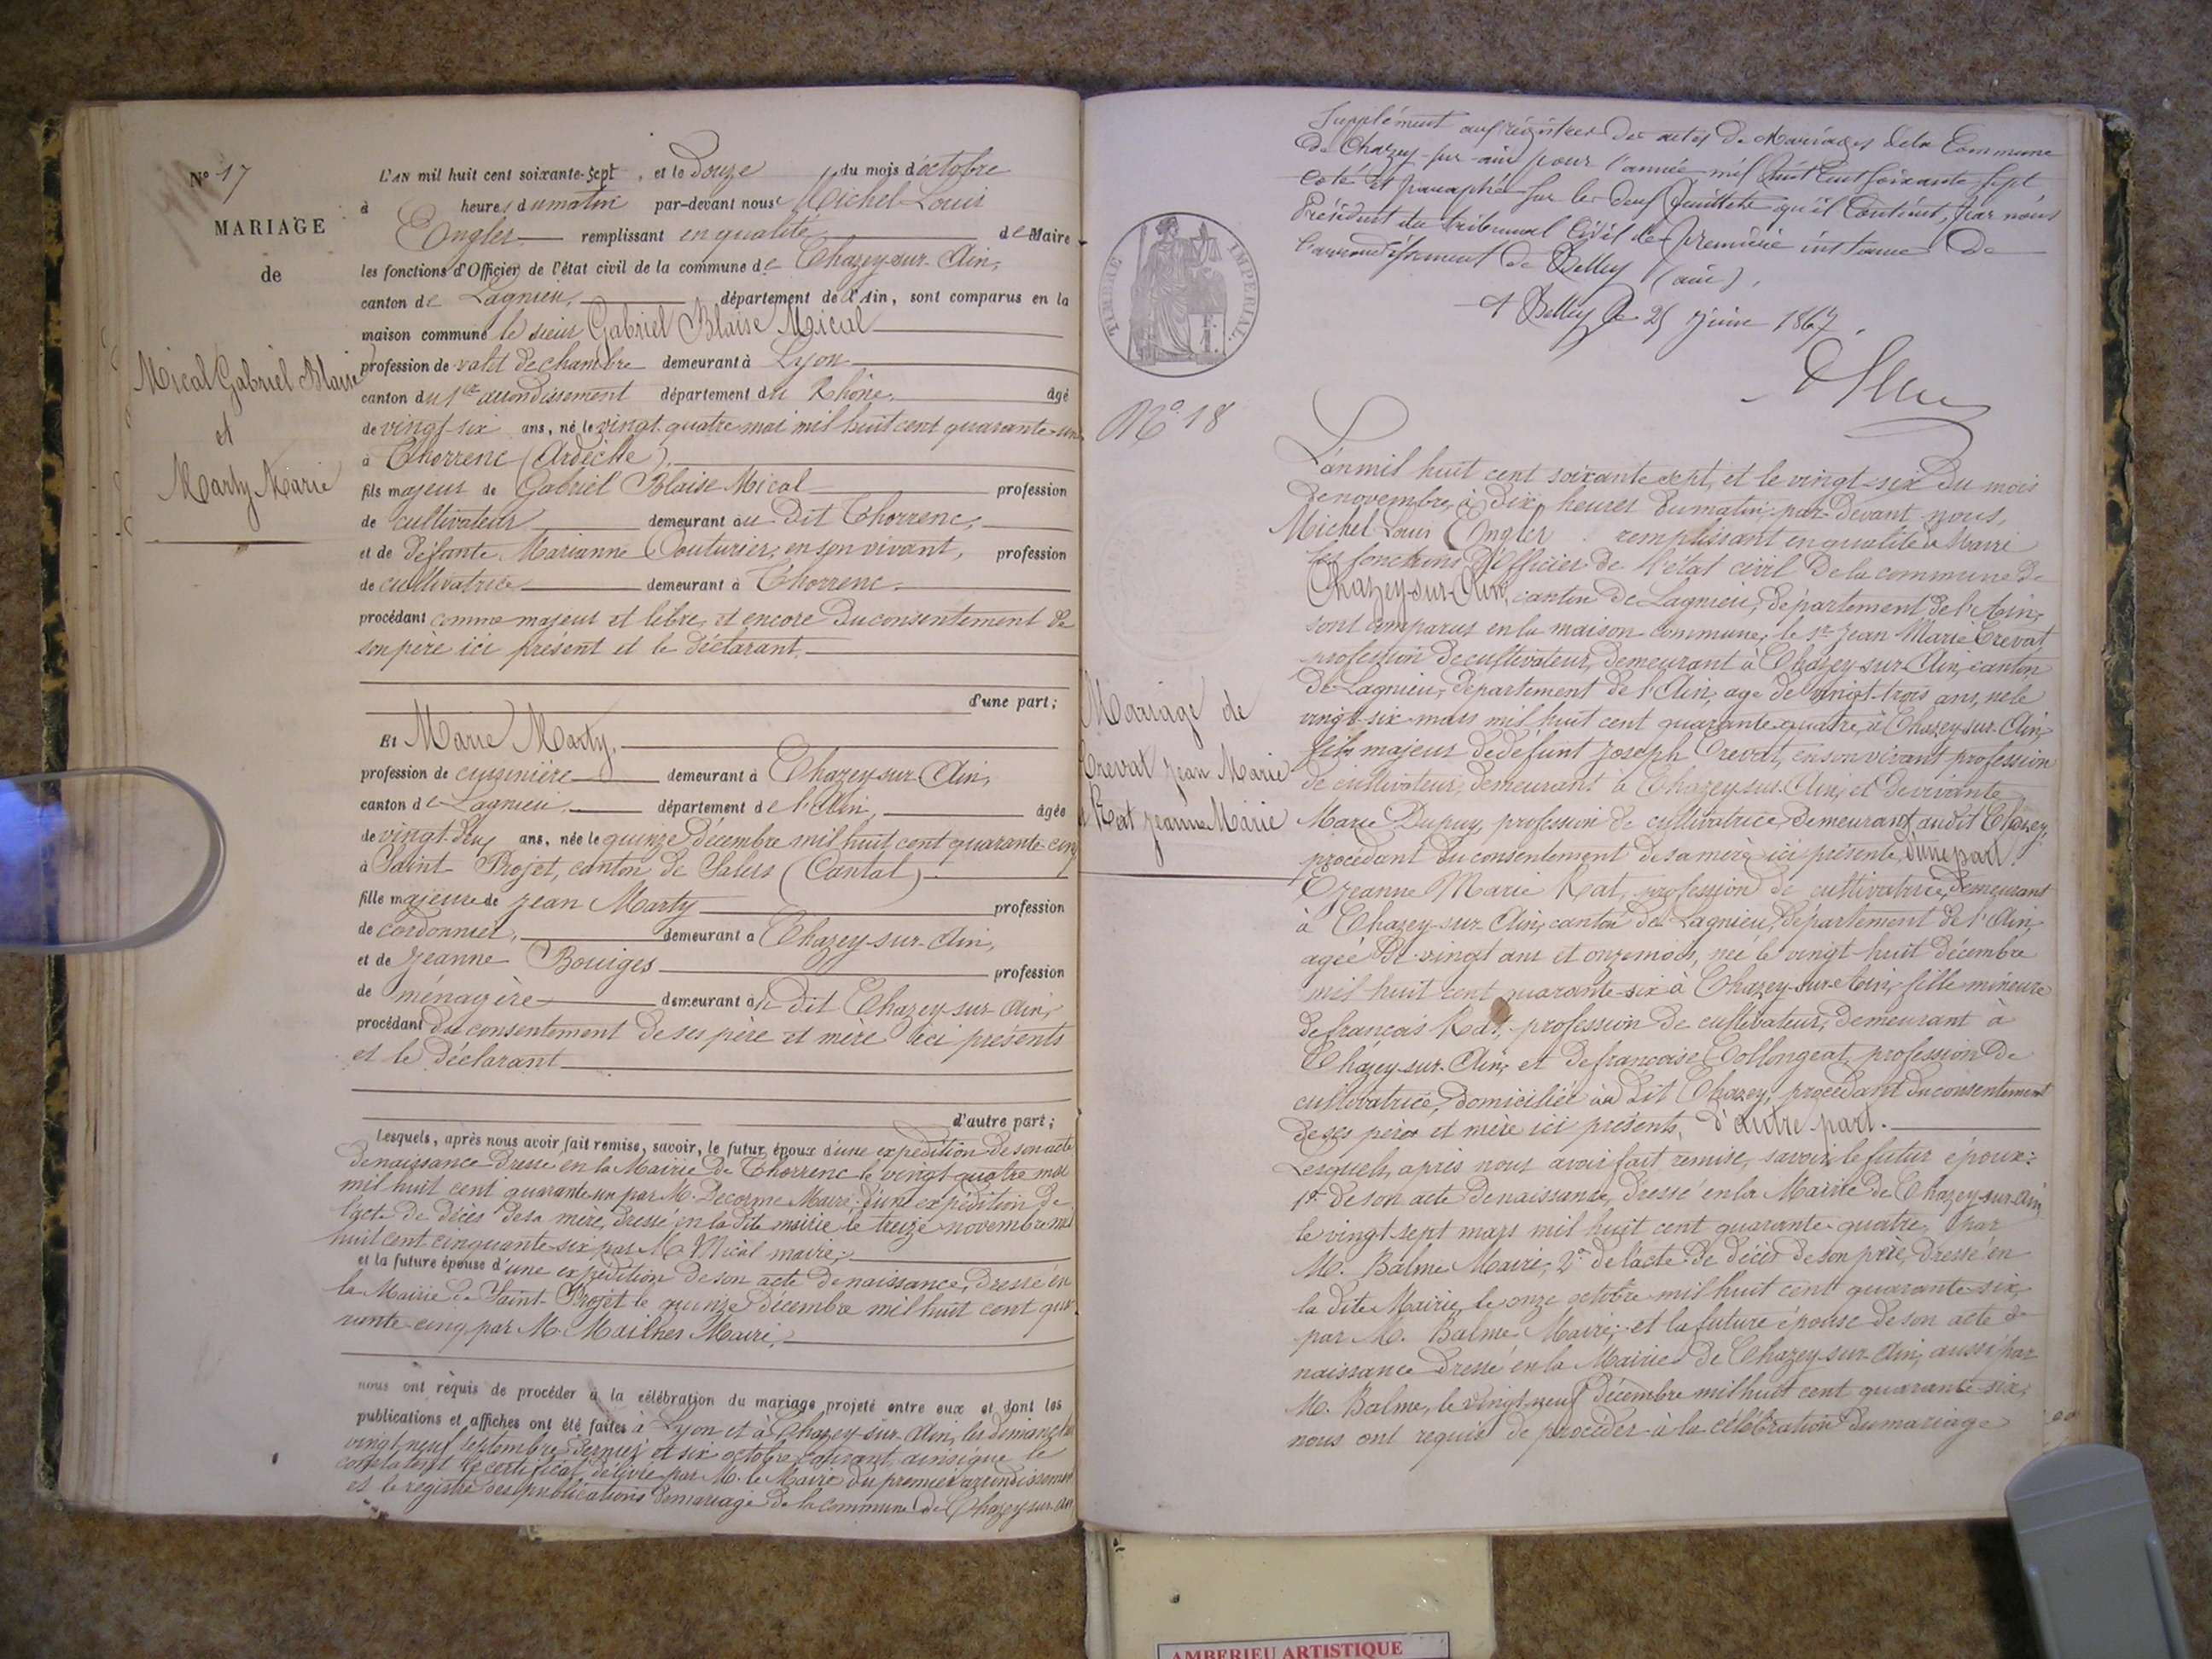 N° 17
MARIAGE
de
Mical Gabriel Blaise
et
Marty Marie
L'AN mil huit cent soixante-sept, et le Douze du mois d'octobre
à heures du matin par-devant nous Michel Louis
Engler remplissant en qualité de Maire
les fonctions d'Officier de l'état civil de la commune de Chazey-sur-Ain,
canton de Lagnieu, département de l'Ain, sont comparus en la
maison commune le sieur Gabriel Blaise Mical
profession de valet de chambre demeurant à Lyon
canton du 1er arrondissement département du Rhône, âgé
de vingt-six ans, né le vingt-quatre mai mil huit cent quarante-un
à Thorrenc (Ardèche)
fils majeur de Gabriel Blaise Mical profession
de cultivateur demeurant au dit Thorrenc,
et de défunte Marianne Couturier, en son vivant, profession
de cultivatrice demeurant à Thorrenc.
procédant comme majeur et libre, et encore du consentement de
son père ici présent et le déclarant.
d'une part;
Et Marie Marty,
profession de cuisinière demeurant à Chazey-sur-Ain,
canton de Lagnieu, département de l'Ain, âgée
de vingt-deux ans, née le quinze décembre mil huit cent quarante-cinq
à Saint-Projet, canton de Salers (Cantal)
fille majeure de Jean Marty profession
de cordonnier, demeurant a Chazey-sur-Ain,
et de Jeanne Bouiges profession
de ménagère demeurant à dit Chazey-sur-Ain,
procédant du consentement de ses père et mère ici présents
et le déclarant
d'autre part;
Lesquels, après nous avoir fait remise, savoir, le futur époux d'une expédition de son acte
de naissance dressé en la Mairie de Thorrenc le vingt-quatre mai
mil huit cent quarante un par M. Decorme Maire, d'une expédition de
l'acte de décès de sa mère, dressé en la dite mairie le treize novembre mil
huit cent cinquante-six par M. Mical maire;
et la future épouse d'une expédition de son acte de naissance, dressé en
la Mairie de Saint-Projet le quinze décembre mil huit cent qua
rante-cinq par M. Mailhes Maire,
nous ont requis de procéder à la célébration du mariage projeté entre eux et dont les
publications et affiches ont été faites à Lyon et à Chazey-sur-Ain, les dimanches
vingt-neuf septembre dernier et six octobre courant ainsi que le
constatent le certificat délivré par M. le Maire du premier arrondissement
et le registre des publications de mariage de la commune de Chazey-sur-Ain
Supplément aux registres des actes de Mariages de la Commune
de Chazey-sur-ain pour l'année mil huit cent soixante sept
coté et paraphé sur les deux feuillets qu'il contient, par nous
Président du tribunal Civil de première instance de
l'arrondissement de Belley (ain),
A Belley le 25 juin 1867.
TIMBRE IMPERIAL
N° 18
Mariage de
Crevat Jean Marie
et Rat Jeanne Marie
L'an mil huit cent soixante sept, et le vingt-six du mois
de novembre, à dix heures du matin, par-devant nous,
Michel Louis Engler remplissant en qualité de Maire
les fonctions d'officier de l'état civil de la commune de
Chazey-sur-Ain, canton de Lagnieu, département de l'Ain,
sont comparus en la maison commune, le sr Jean Marie Crevat
profession de cultivateur, demeurant à Chazey-sur-Ain, canton
de Lagnieu, département de l'Ain, age de vingt-trois ans, né le
vingt-six mars mil huit cent quarante-quatre, à Chazey-sur-Ain,
fils majeur de défunt Joseph Crevat, en son vivant profession
de cultivateur, demeurant à Chazey-sur-Ain, et de vivante
Marie Dupuy, profession de cultivatrice, demeurant au dit Chazey,
procédant du consentement de sa mère ici présente, d'une part.
Et Jeanne Marie Rat, profession de cultivatrice, demeurant
à Chazey-sur-Ain, canton de Lagnieu, département de l'Ain,
agée de vingt ans et onze mois, née le vingt-huit décembre
mil huit cent quarante-six à Chazey-sur-Ain, fille mineure
de françois Rat, profession de cultivateur, demeurant à
Chazey-sur-Ain, et de françoise Collongeat, profession de
cultivatrice, domiciliée au dit Chazey, procédant du consentement
de ses père et mère ici présents, d'autre part.
Lesquels, après nous avoir fait remise, savoir, le futur époux:
1° de son acte de naissance, dressé en la Mairie de Chazey-sur-Ain
le vingt-sept mars mil huit cent quarante-quatre, par
M. Balme Maire, 2° de l'acte de décès de son père, dressé en
la dite Mairie, le onze octobre mil huit cent quarante-six,
par M. Balme Maire; et la future épouse de son acte de
naissance dressé en la Mairie de Chazey-sur-Ain, aussi par
M. Balme, le vingt-neuf décembre mil huit cent quarante-six,
nous ont requis de procéder à la célébration du mariage
AMBERIEU ARTISTIQUE